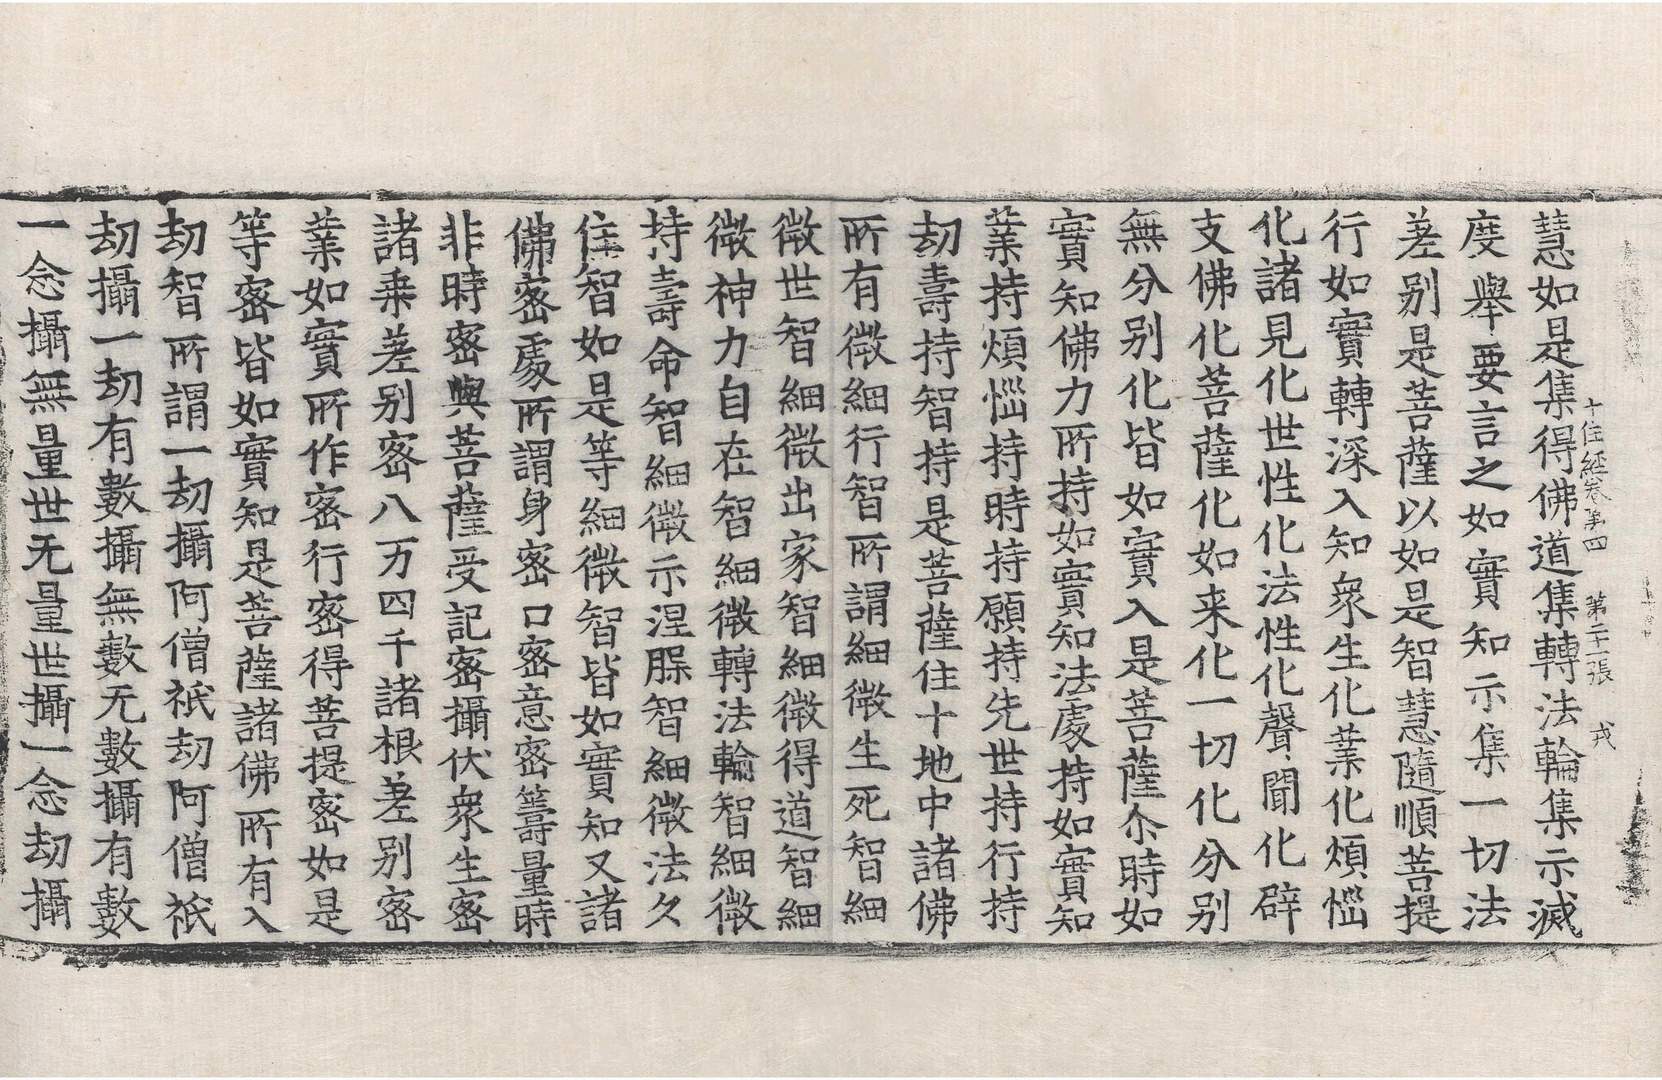 十住經卷第四　第二十一張　戎
慧如是集得佛道集轉法輪集示滅
度舉要言之如實知示集一切法
差别是菩薩以如是智慧隨順菩提
行如實轉深入知衆生化業化煩惱
化諸見化世性化法性化聲聞化辟
支佛化菩薩化如来化一切化分别
無分别化皆如實入是菩薩尒時如
實知佛力所持如實知法處持如實知
業持煩惱持時持願持先世持行持
劫壽持智持是菩薩住十地中諸佛
所有微細行智所謂細微生死智細
微世智細微出家智細微得道智細
微神力自在智細微轉法輪智細微
持壽命智細微示涅槃智細微法久
住智如是等細微智皆如實知又諸
佛密處所謂身密口密意密籌量時
非時密與菩薩受記密攝伏衆生密
諸乗差别密八万四千諸根差别密
業如實所作密行密得菩提密如是
等密皆如實知是菩薩諸佛所有入
劫智所謂一劫攝阿僧祇劫阿僧祇
劫攝一劫有數攝無數无數攝有數
一念攝無量世无量世攝一念劫攝